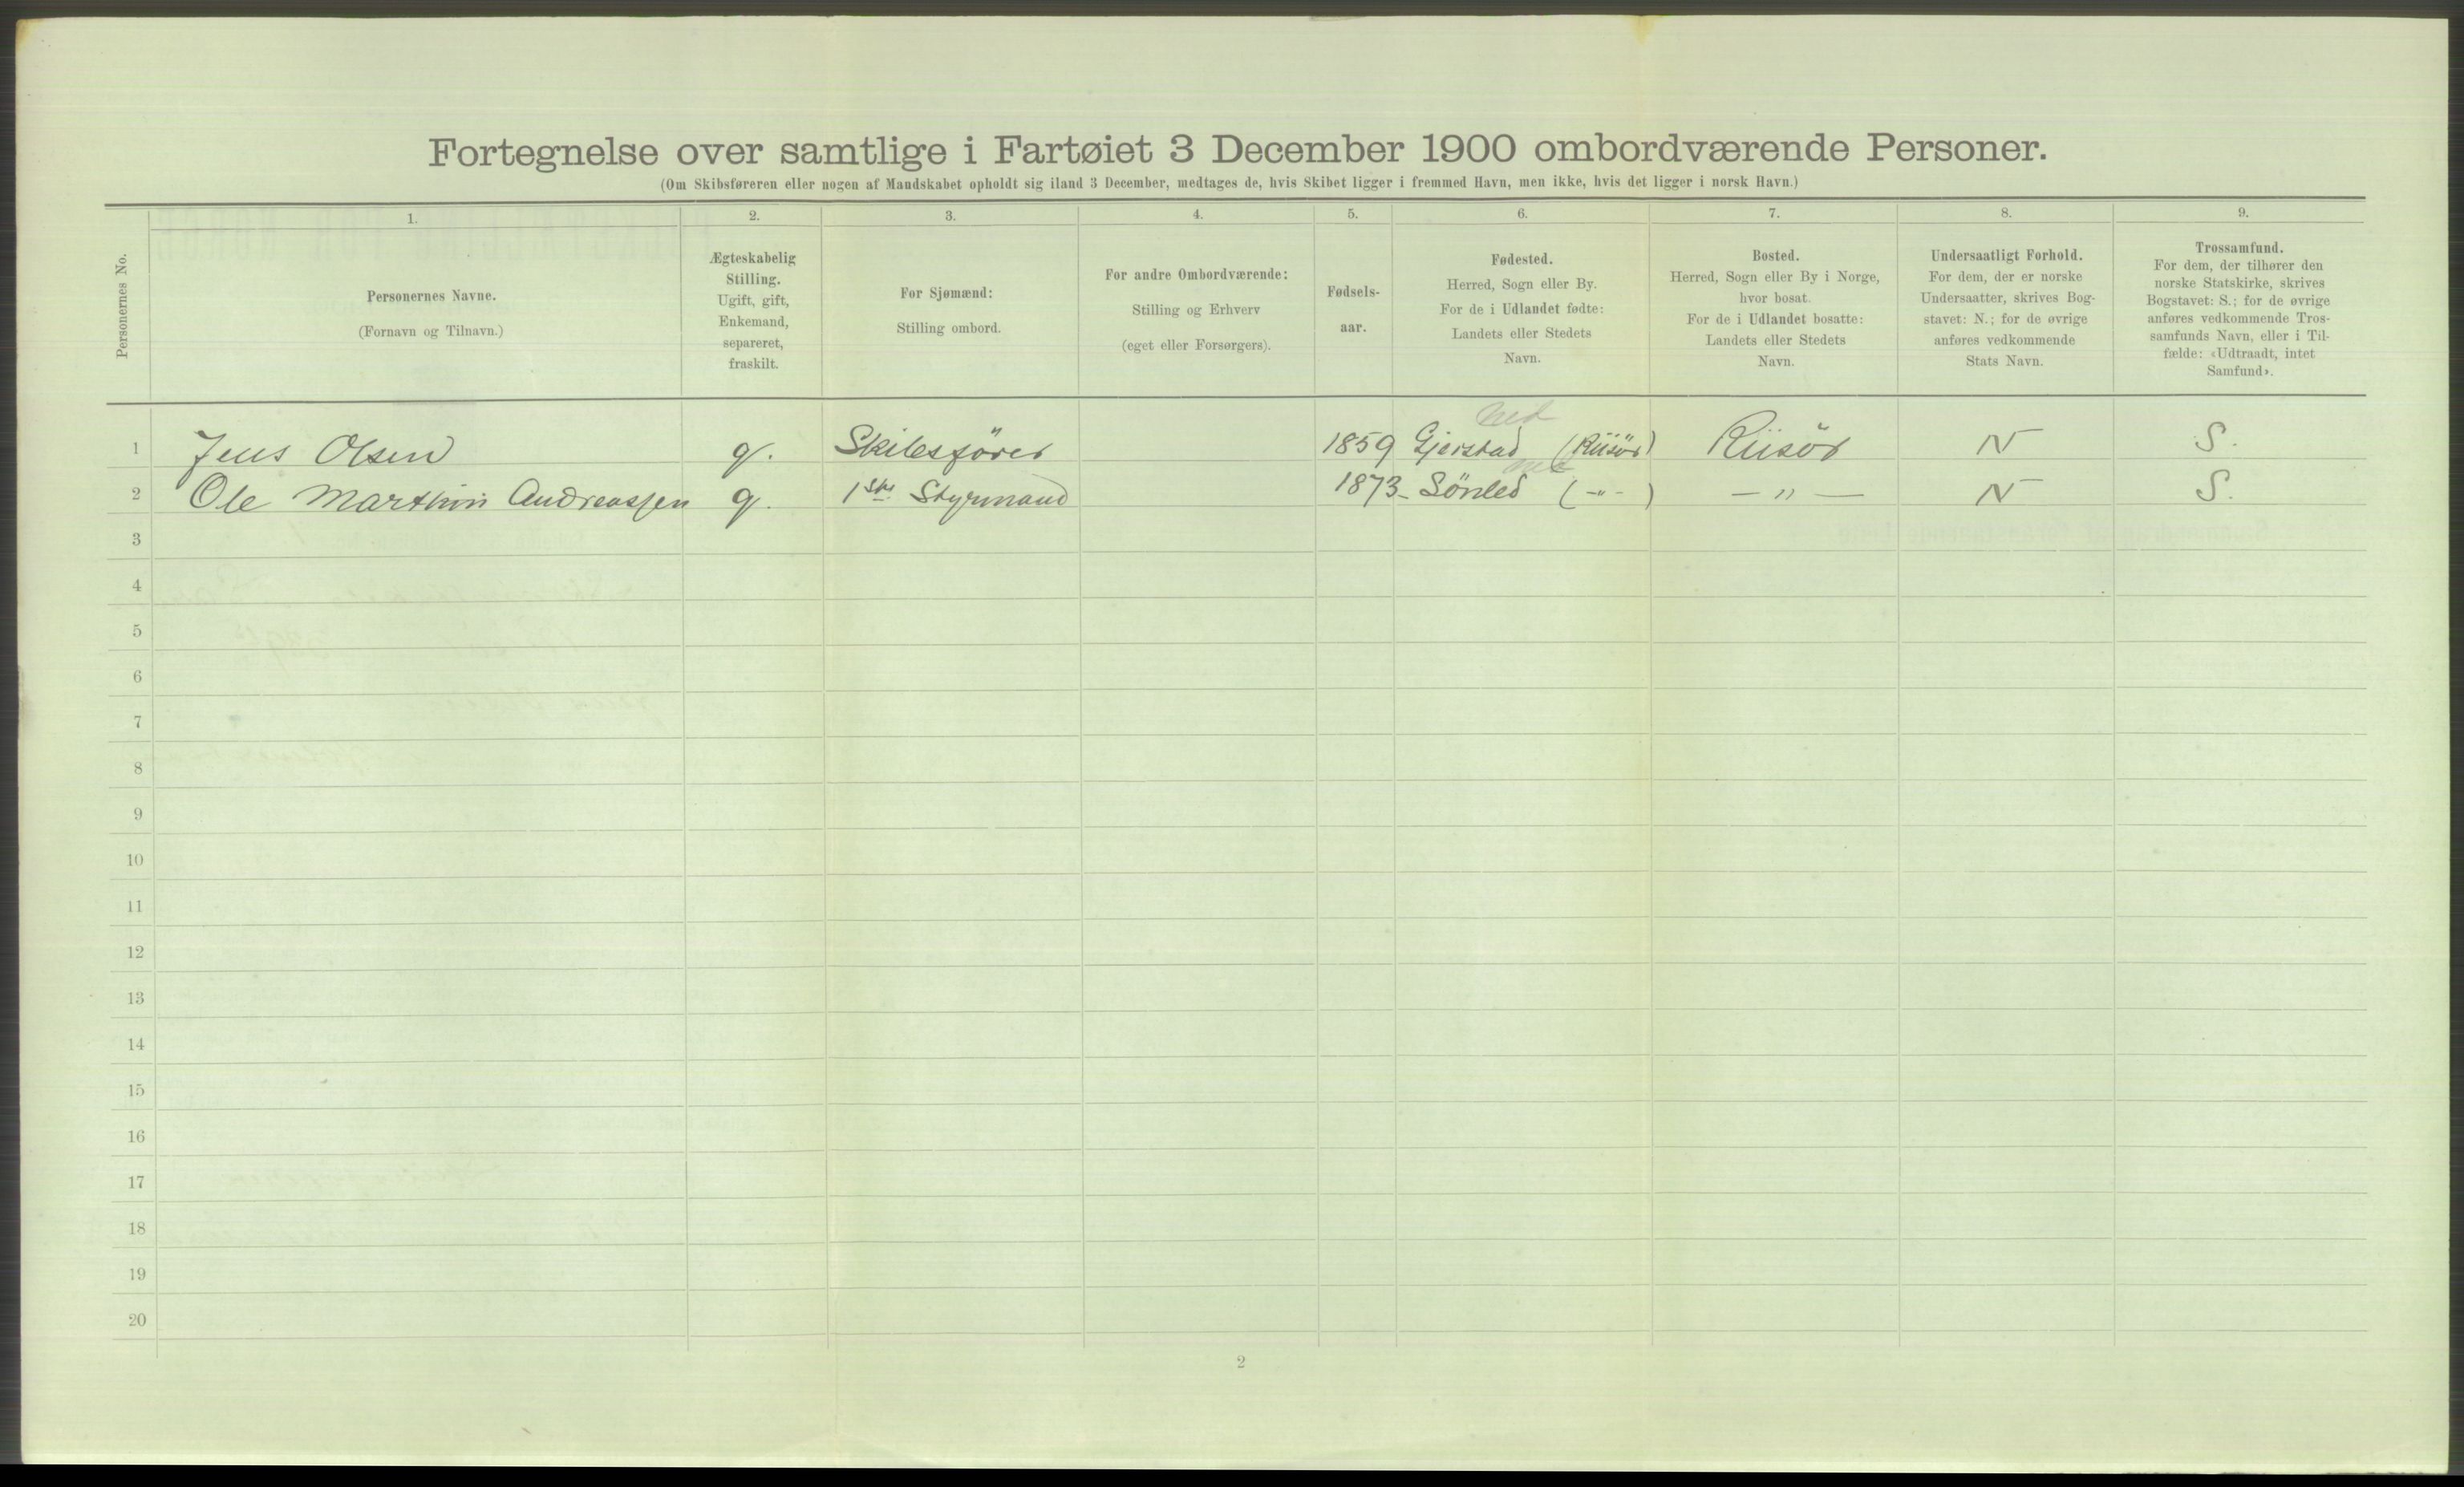 Fortegnelse over samtlige i Fartøiet 3 December 1900 ombordværende Personer.
(Om Skibsføreren eller nogen af Mandskabet opholdt sig iland 3 December, medtages de, hvis Skibet ligger i fremmed Havn, men ikke, hvis det ligger i norsk Havn.)
Personernes No.
1. 2. 3. 4. 5. 6. 7. 8. 9.
Personernes Navne.
(Fornavn og Tilnavn.)
Ægteskabelig
Stilling.
Ugift, gift,
Enkemand,
separeret,
fraskilt.
For Sjømænd:
Stilling ombord.
For andre Ombordværende:
Stilling og Erhverv
(eget eller Forsørgers).
Fødsels-
aar.
Fødested.
Herred, Sogn eller By.
For de i Udlandet fødte:
Landets eller Stedets
Navn.
Bosted.
Herred, Sogn eller By i Norge,
hvor bosat.
For de i Udlandet bosatte:
Landets eller Stedets
Navn.
Undersaatligt Forhold.
For dem, der er norske
Undersaatter, skrives Bog-
stavet: N.; for de øvrige
anføres vedkommende
Stats Navn.
Trossamfund.
For dem, der tilhører den
norske Statskirke, skrives
Bogstavet: S.; for de øvrige
anføres vedkommende Tros-
samfunds Navn, eller i Til-
fælde: «Udtraadt, intet
Samfund».
Ned
1 Jens Olsen g. Skibsförer 1859 Gjerstad (Riisör) Riisör N S.
Ned
2 Ole Marthin Andreassen g. 1ste Styrmand 1873 - Sönled (-"-) - " - N S.
3
4
5
6
7
8
9
10
11
12
13
14
15
16
17
18
19
20
2